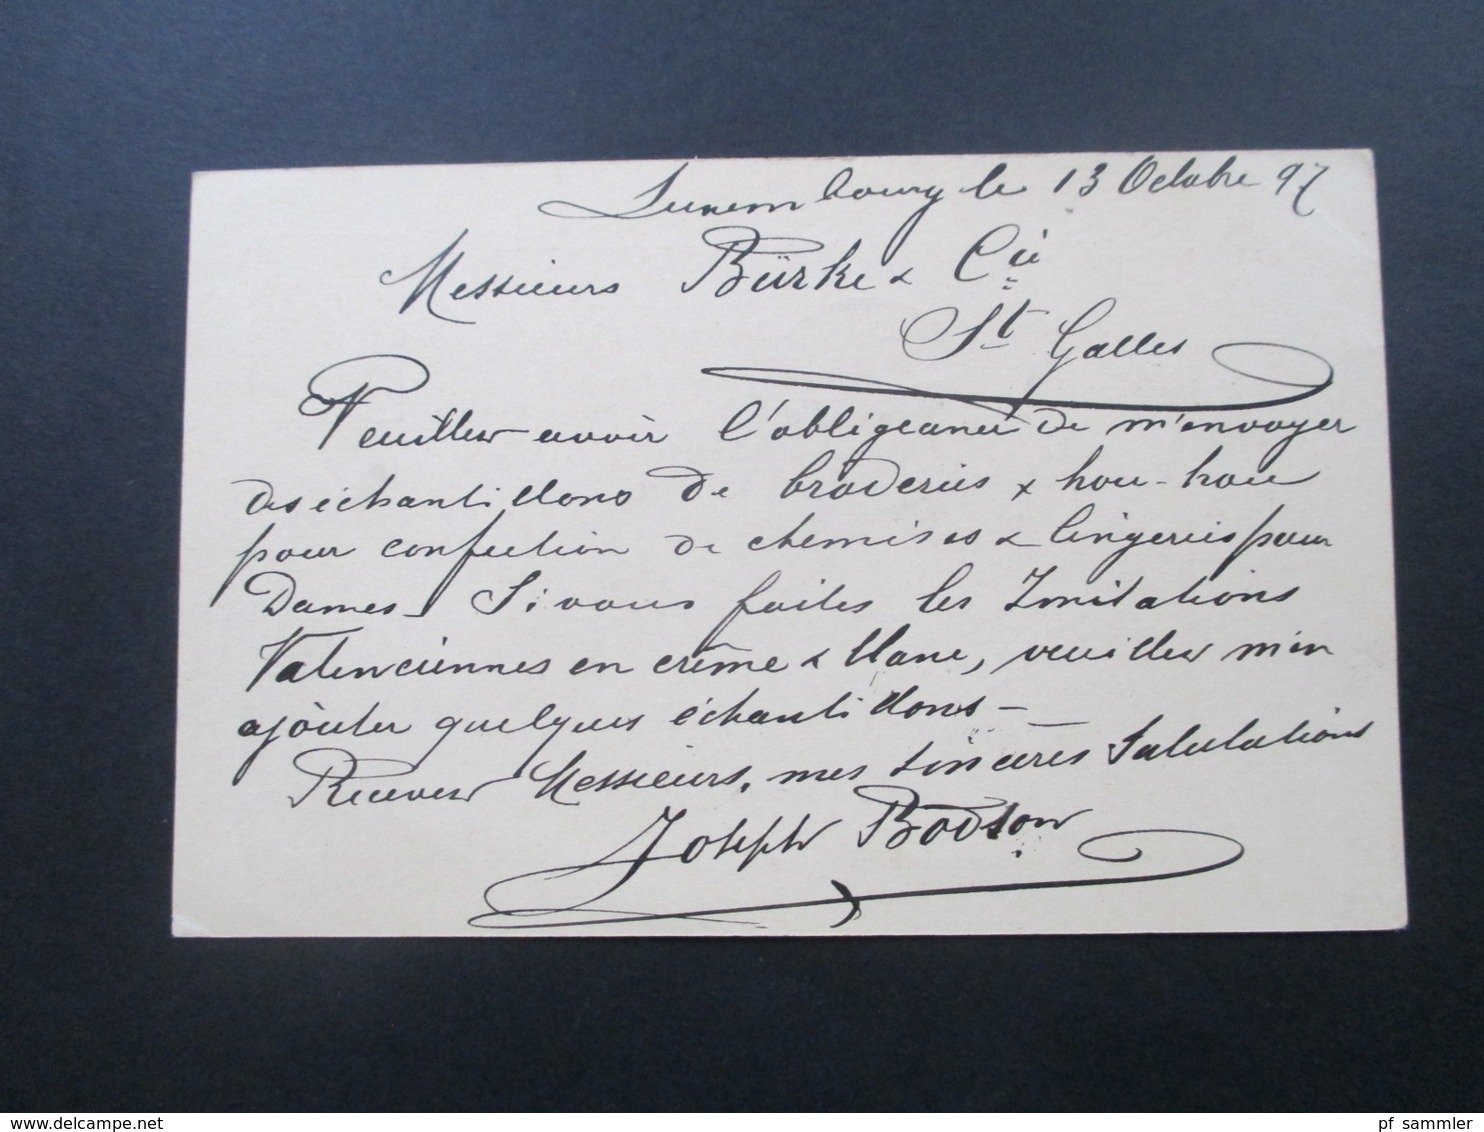 Luxembourg le 13 Octobre 97
Messieurs Bürke & Cie
St Galles
Veuillez avoir l'obligeance de m'envoyer
des échantillons de broderies & trou-trou
pour confection de chemises & lingeries pour
Dames. Si vous faites les Imitations
Valenciennes en crème & blanc, veuillez m'en
ajouter quelques échantillons -
Recevez Messieurs, mes sincères Salutations
Joseph Bodson
pf_sammler